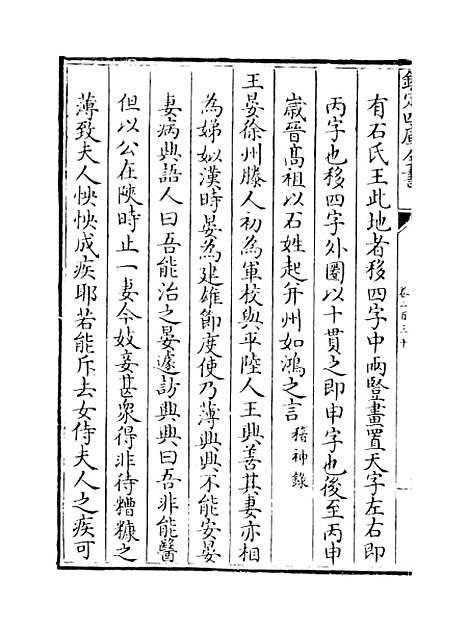 欽定四庫全書
卷二百三十
有石氏王此地者移四字中兩豎畫置天字左右即
丙字也移四字外圍以十貫之即申字也後至丙申
嵗晉髙祖以石姓起并州如鴻之言稽神錄
王晏徐州滕人初為軍校與平陸人王興善其妻亦相
為娣姒漢時晏為建雄節度使乃薄興興不能安晏
妻病興語人曰吾能治之晏遽訪興興曰吾非能醫
但以公在陜時止一妻今妓妾甚衆得非待糟糠之
薄致夫人怏怏成疾耶若能斥去女侍夫人之疾可